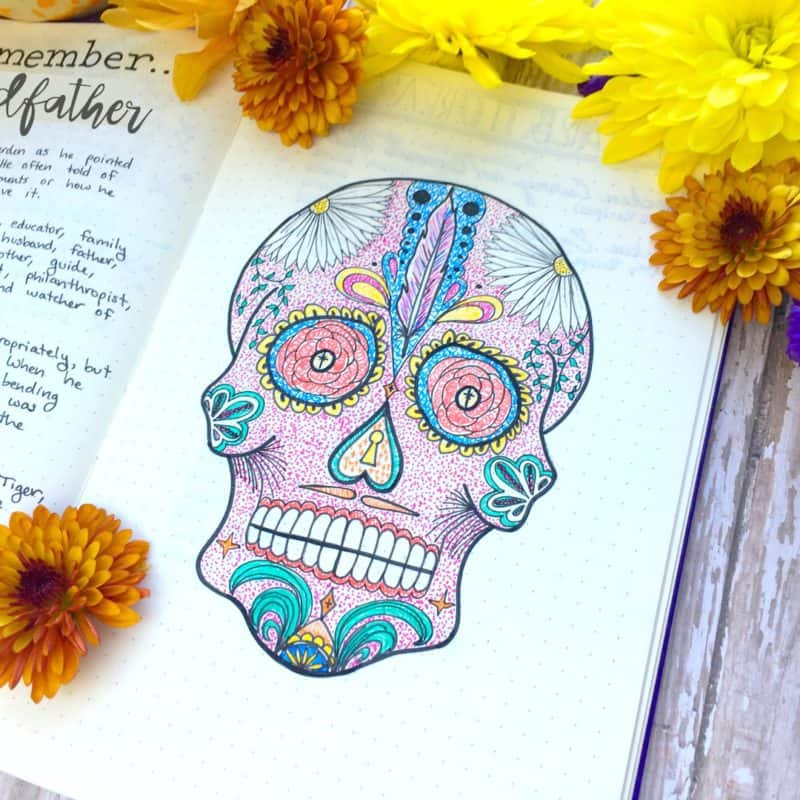 member..
dfather
rden as he pointed
He often told of
ounts or how he
ve it.
educator, family
husband, father,
other, guide,
t, philanthropist,
nd watcher of
ropriately, but
When he
bending
was
the
Tiger,